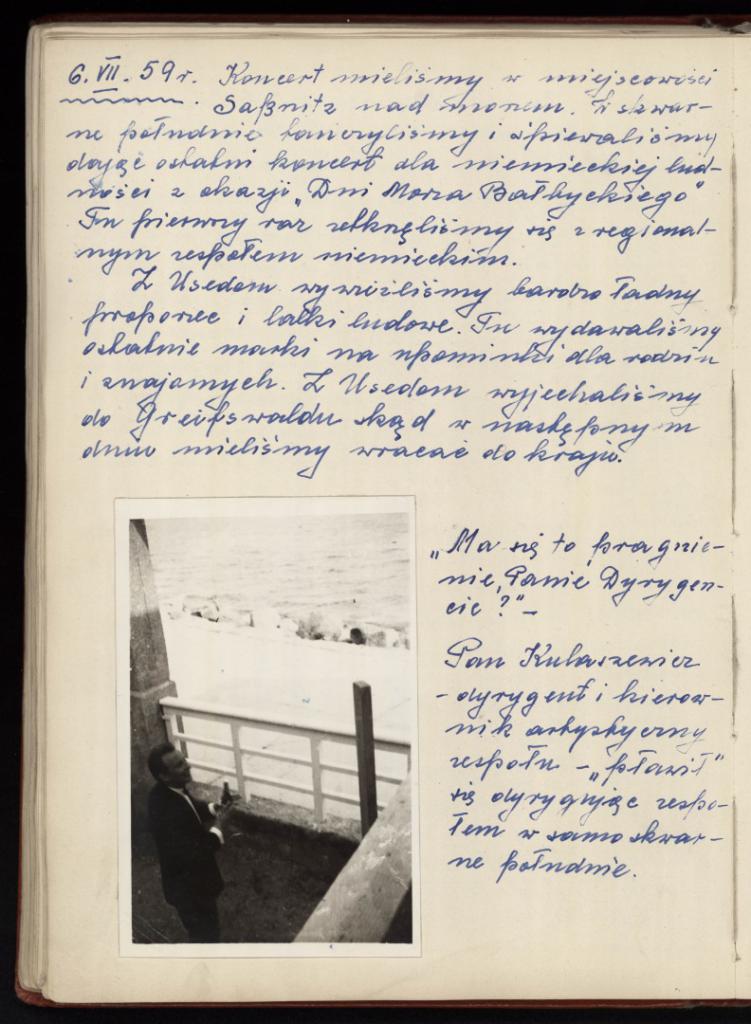 6. VII. 59 r. Koncert mieliśmy w miejscowości
Saßnitz nad morzem. W skwar-
ne południe tańczyliśmy i śpiewaliśmy
dając ostatni koncert dla niemieckiej lud-
ności z okazji „Dni Morza Bałtyckiego"
Tu pierwszy raz zetknęliśmy się z regional-
nym zespołem niemieckim.
Z Usedom wywieźliśmy bardzo ładny
proporzec i lalki ludowe. Tu wydawaliśmy
ostatnie marki na upominki dla rodzin
i znajomych. Z Usedom wyjechaliśmy
do Greifswaldu skąd w następnym
dniu mieliśmy wracać do kraju.
„Ma się to pragnie-
nie, Panie Dyrygen-
cie?" –
Pan Kulaszewicz
- dyrygent i kierow-
nik artystyczny
zespołu – „pławił"
się dyrygując zespo-
łem w samo skwar-
ne południe.